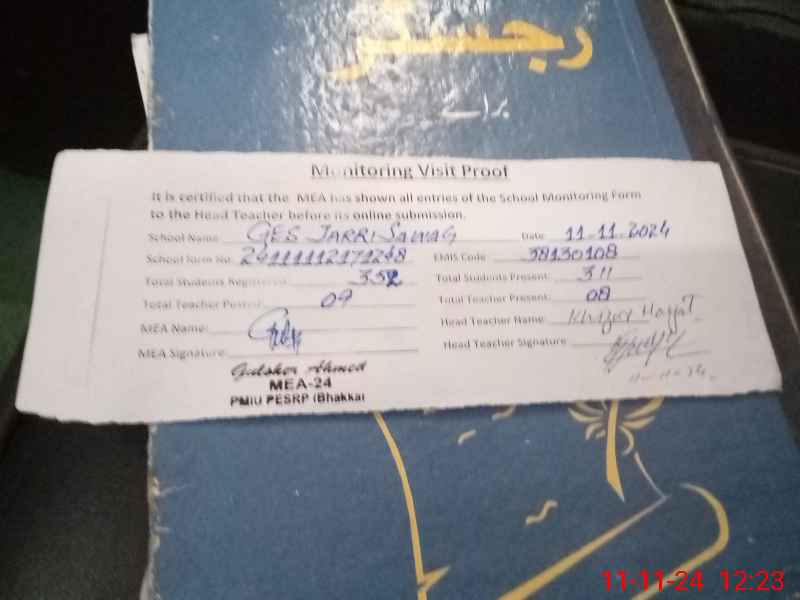 رجسٹر
برائے
Monitoring Visit Proof
It is certified that the MEA has shown all entries of the School Monitoring Form
to the Head Teacher before its online submission.
School Name GES JARRI SAWAG Date 11-11-2024
School form No. 24111112171248 EMIS Code 38130108
Total Students Registered 352 Total Students Present: 311
Total Teacher Posted: 09 Total Teacher Present: 08
MEA Name: Head Teacher Name: Khizar Hayat
MEA Signature: Head Teacher Signature
Gulsher Ahmed
MEA-24
PMIU PESRP (Bhakkar
11-11-24 12:23